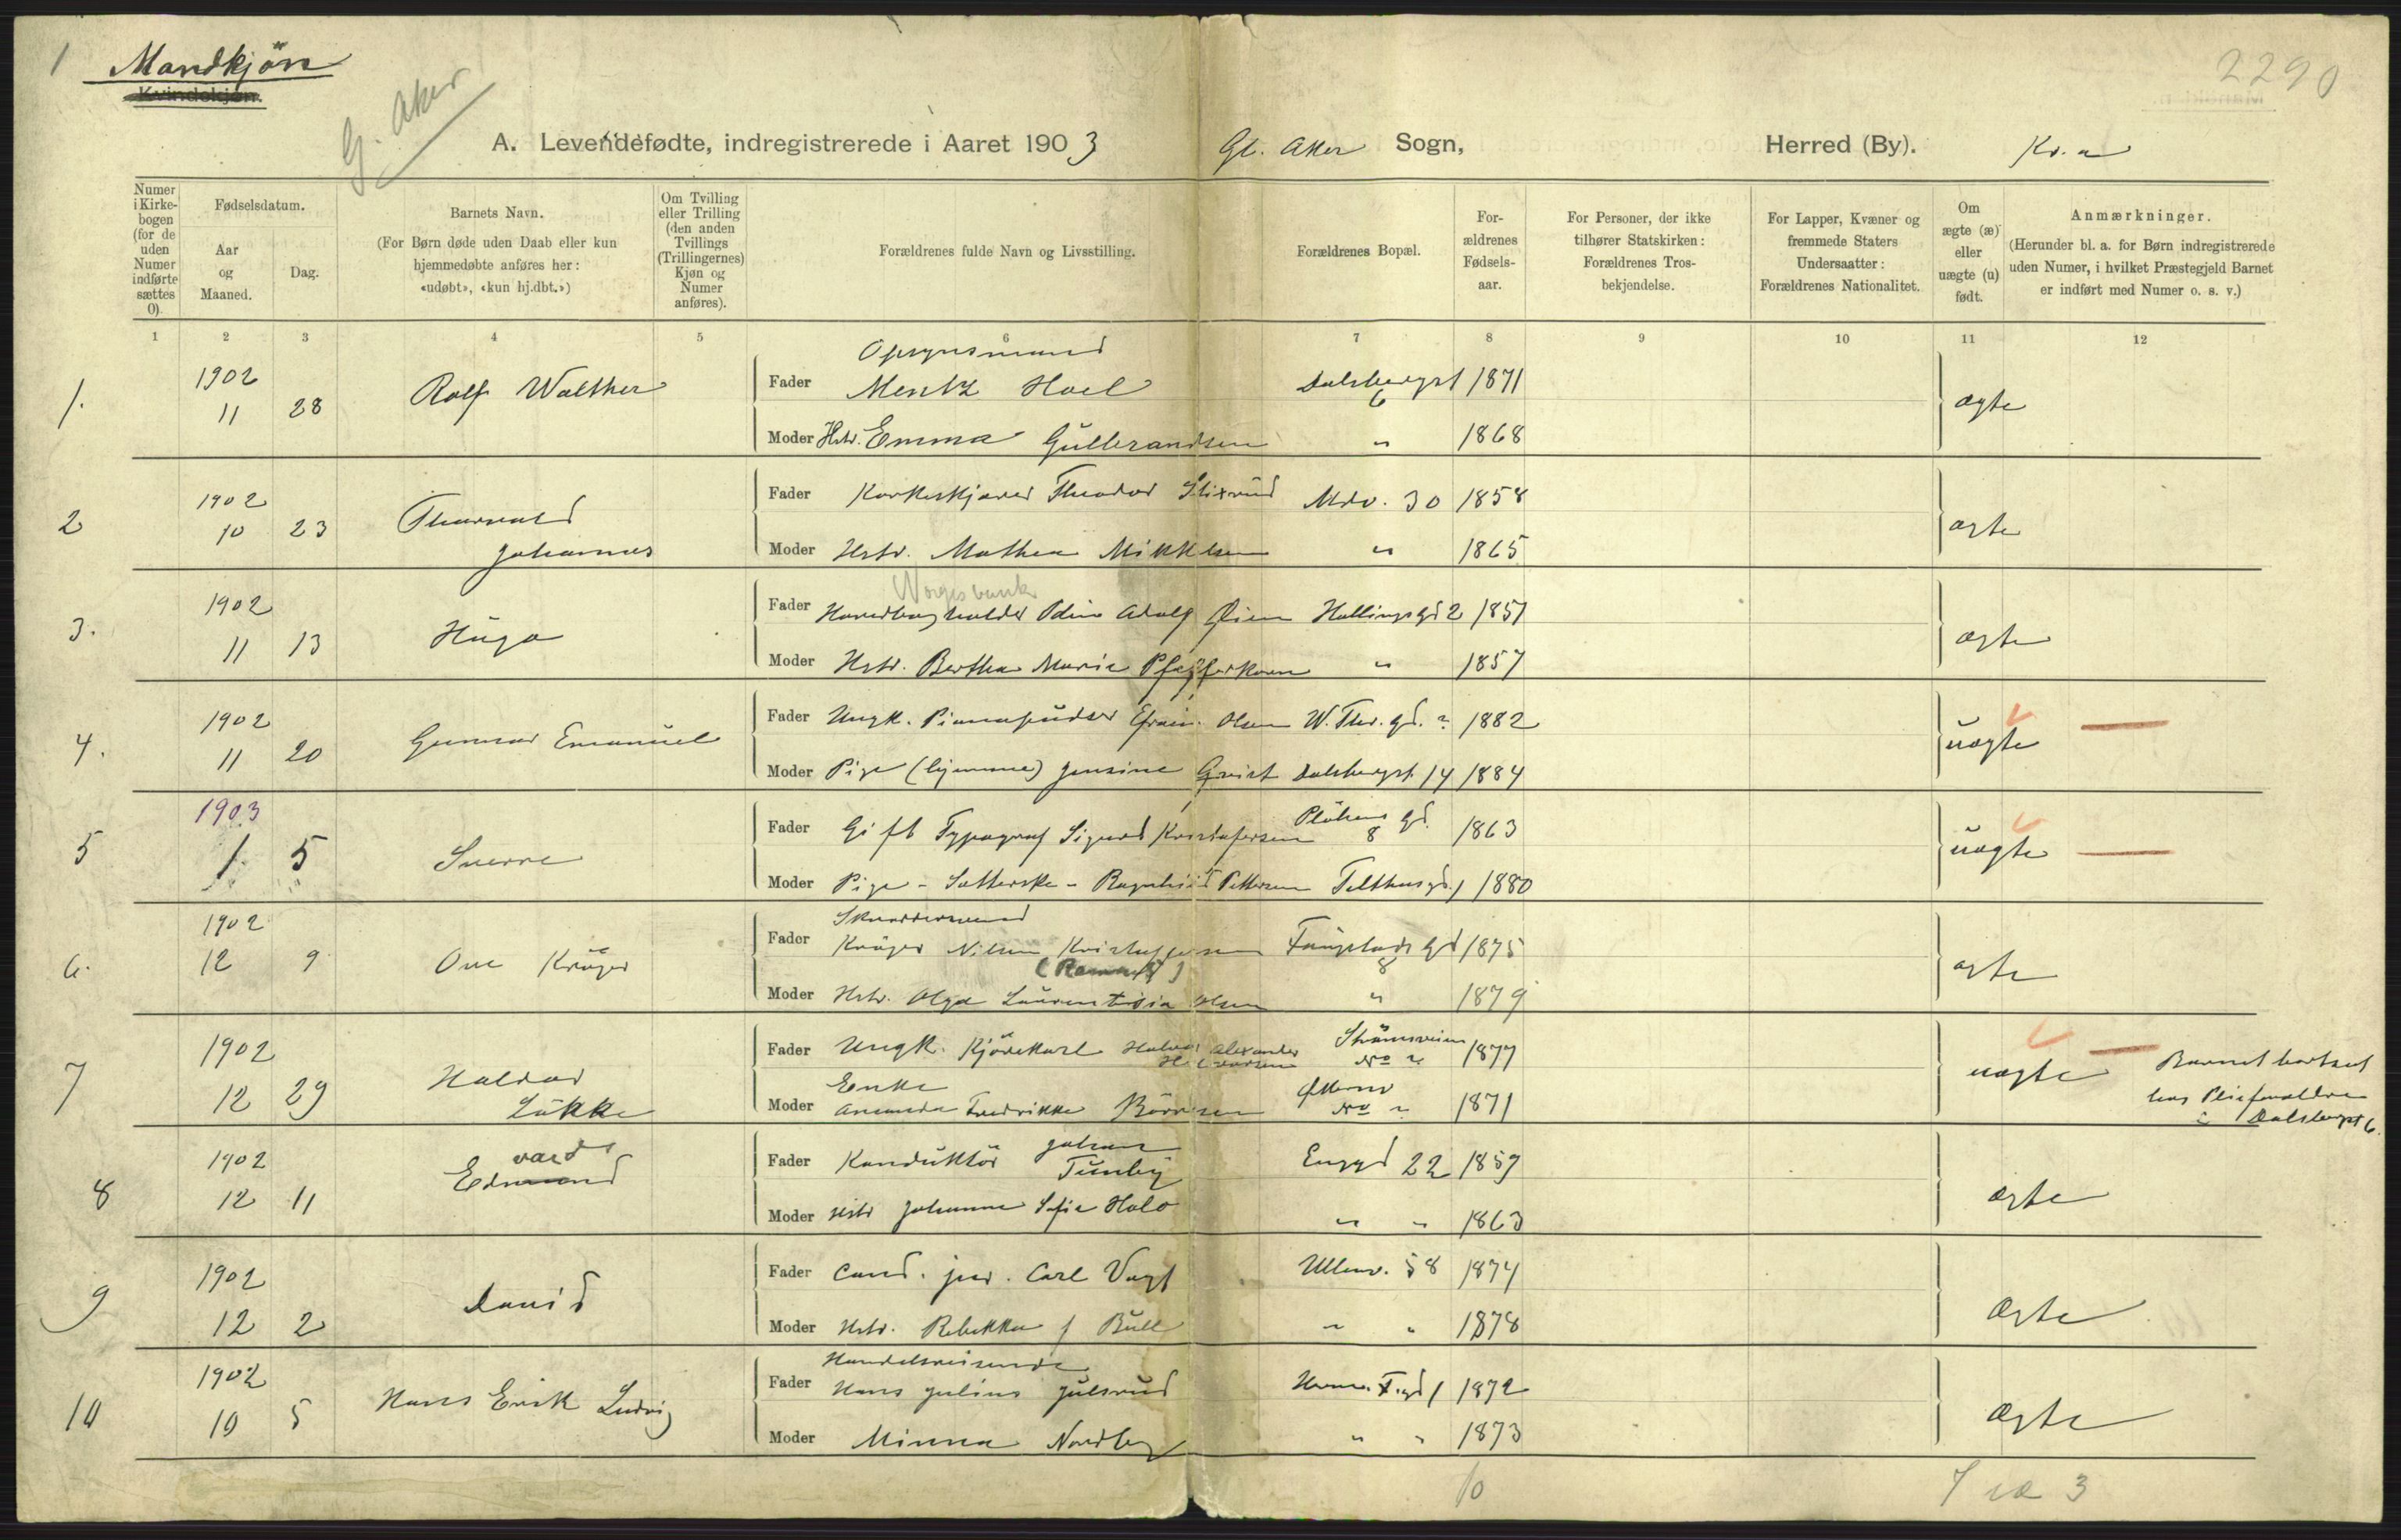 1 Mandkjön 2290
Kvindekjøn.
G. Aker
A. Levendefødte, indregistrerede i Aaret 1903 Gl. Aker Sogn, Herred (By). Kr.a
Numer i Kirke-bogen (for de uden Numer indførte sættes 0).
Fødselsdatum.
Aar og Maaned.
Dag.
Barnets Navn.
(For Børn døde uden Daab eller kun hjemmedøbte anføres her: «udøbt», «kun hj.dbt.»)
Om Tvilling eller Trilling (den anden Tvillings (Trillingernes) Kjøn og Numer anføres).
Forældrenes fulde Navn og Livsstilling.
Forældrenes Bopæl.
For-ældrenes Fødsels-aar.
For Personer, der ikke tilhører Statskirken: Forældrenes Tros-bekjendelse.
For Lapper, Kvæner og fremmede Staters Undersaatter: Forældrenes Nationalitet.
Om ægte (æ) eller uægte (u) født.
Anmærkninger.
(Herunder bl. a. for Børn indregistrerede uden Numer, i hvilket Præstegjeld Barnet er indført med Numer o. s. v.)
1 2 3 4 5 6 7 8 9 10 11 12
Opsynsmand
1. 1902 11 28 Rolf Walther Fader Mentz Hoel Dalsbergst 6 1871 ægte
Moder Hstr. Emma Gulbrandsen " 1868
2 1902 10 23 Thorvald Johannes Fader Korkeskjærer Theodor Slixrud Mdv. 30 1858 ægte
Moder Hstr. Mathea Mikkelsen " 1865
Norges bank
3. 1902 11 13 Hugo Fader Hovedbogholder Odin Adolf Øien Hallings gd 2 1851 ægte
Moder Hstr. Bertha Marie Pfefferkorn " 1857
4. 1902 11 20 Gunnar Emanuel Fader Ungk. Pianopudser Efraim Olsen W. Thr. gd. 1882 uægte
Moder Pige (hjemme) Jensine Qvist Dalsbergst. 14 1884
5 1903 1 5 Sverre Fader Gift Typograf Sigurd Kristofersen Pløhens gd. 8 1863 uægte
Moder Pige - Satterske - Ragnhild Pettersen Telthusgd. 1 1880
Skræddersvend
6. 1902 12 9 Ove Krüger Fader Krüger Nilsen Kristoffersen Fougstads gd 8 1875 ægte
Moder Hstr. Olga Laurentisia Olsen " 1879
7 1902 12 29 Haldor Lökke Fader Ungk. Kjörekarl Halvor Alexander Strömsveien No 1877 uægte Barnet bortsat
Enke
Moder Amunda Fredrikke No 1871 hos Pleieforældre i Dalsbergst 6.
8 1902 12 11 Edmund vard Fader Konduktör Johan Tunby Enggd 22 1859 ægte
Moder Hstr Johanne Sofie Holo " " 1863
9 1902 12 2 David Fader Cand. jur. Carl Vogt Ullenv. 58 1874 ægte
Moder Hstr. Rebekka f Bull " " 1878
Handelsreisende
10 1902 10 5 Hans Erik Ludvig Fader Hans Julius Julsrud 1 1872 ægte
Moder Minna Nordby " " 1873
10 7 æ 3